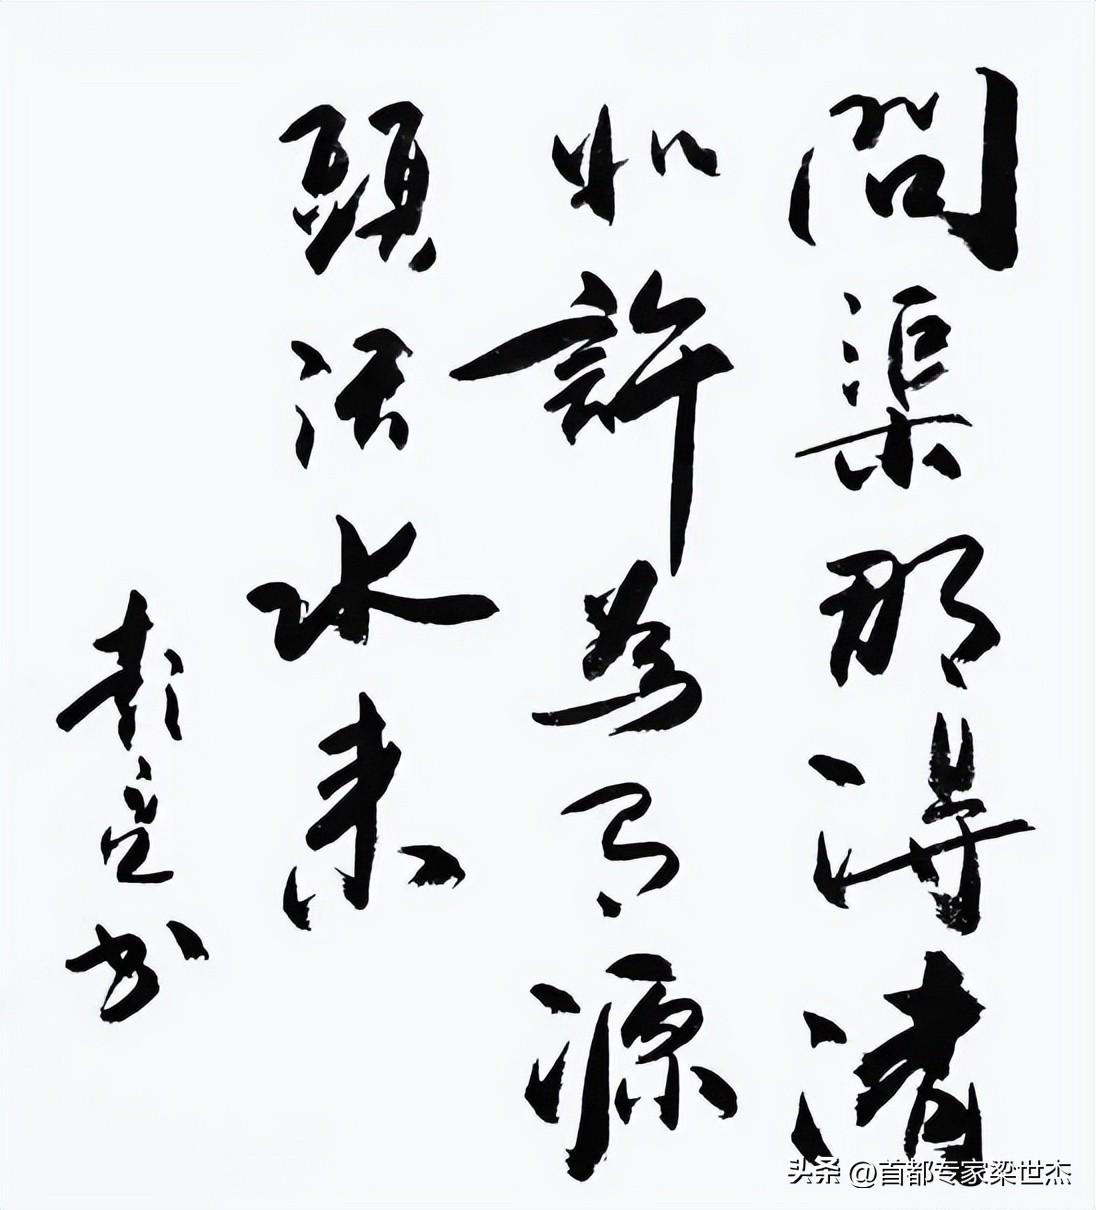 問渠那得清
如許為有源
頭活水来
书
头条 @首都专家梁世杰